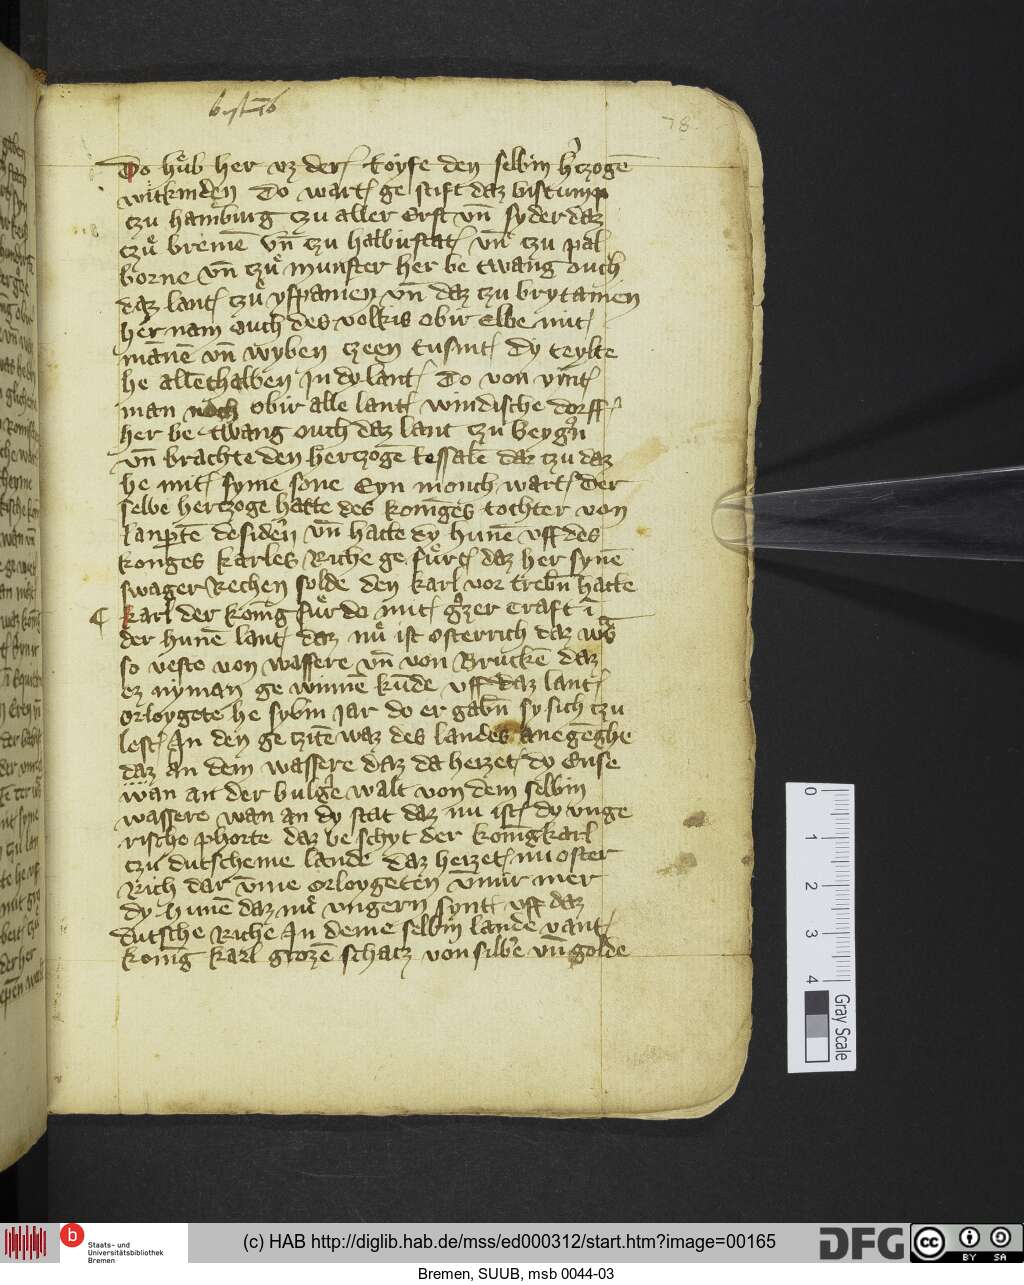 78
Do hůb her vz der toyfe den selbin h'czogē
witkinden Do wart ge stift daz bistump
czu hamburg czu aller Erst vn̄ syder daz
czů bremē vn̄ czu halbirstat vn̄ czu pal
borne vn̄ czů munster her be twang ouch
daz lant czů yspanien vn̄ daz czu brytanien
her nam ouch des volkis obir Elbe mit
mānē vn̄ wyben czeen tusint dy teylte
he allēthalben In dy lant Do von vint
man noch obir alle lant windische dorff
her be twang ouch daz lant czu beyg'n
vn̄ brachte den herczoge tessalē dar czu daz
he mit syme sone Eyn monch wart Der
selbe herczoge hatte des koniges tochter von
lanp̄te desider'̄ vn̄ hatte dy hunē vff des
konges karles Riche ge fůrt daz her synē
swager Rechen solde den karl vor trebn̄ hatte
karl der konig fůr do mit g'zer craft ī
der hunē lant daz nů ist osterrich daz w̄z
so veste von wassere vn̄ von Bruckē daz
ez nyman ge winnē kūde vff daz lant
orloygete he sybin Jar do er gabn̄ sy sich czu
lest An den ge cziten waz des landes anegēghe
daz an dem wassere daz da heizet dy Ense
wan an der bulg'e walt von dem selbin
wassere wan an dy stat daz nu ist dy vnge
rische phorte daz be schyt der konig karl
czu dutscheme lande daz heizet nu oster
Rich dar vm̄e orloygeten vm̄ir mer
dy hunē daz nů vngern synt vff daz
dutsche Riche In deme selbin lande vant
konig karl grozē schacz von silb'e vn̄ golde
0
1
2
3
4
Gray Scale
b
Staats- und
Universitätsbibliothek
Bremen
(c) HAB http://diglib.hab.de/mss/ed000312/start.htm?image=00165
DFG
cc
BY SA
Bremen, SUUB, msb 0044-03